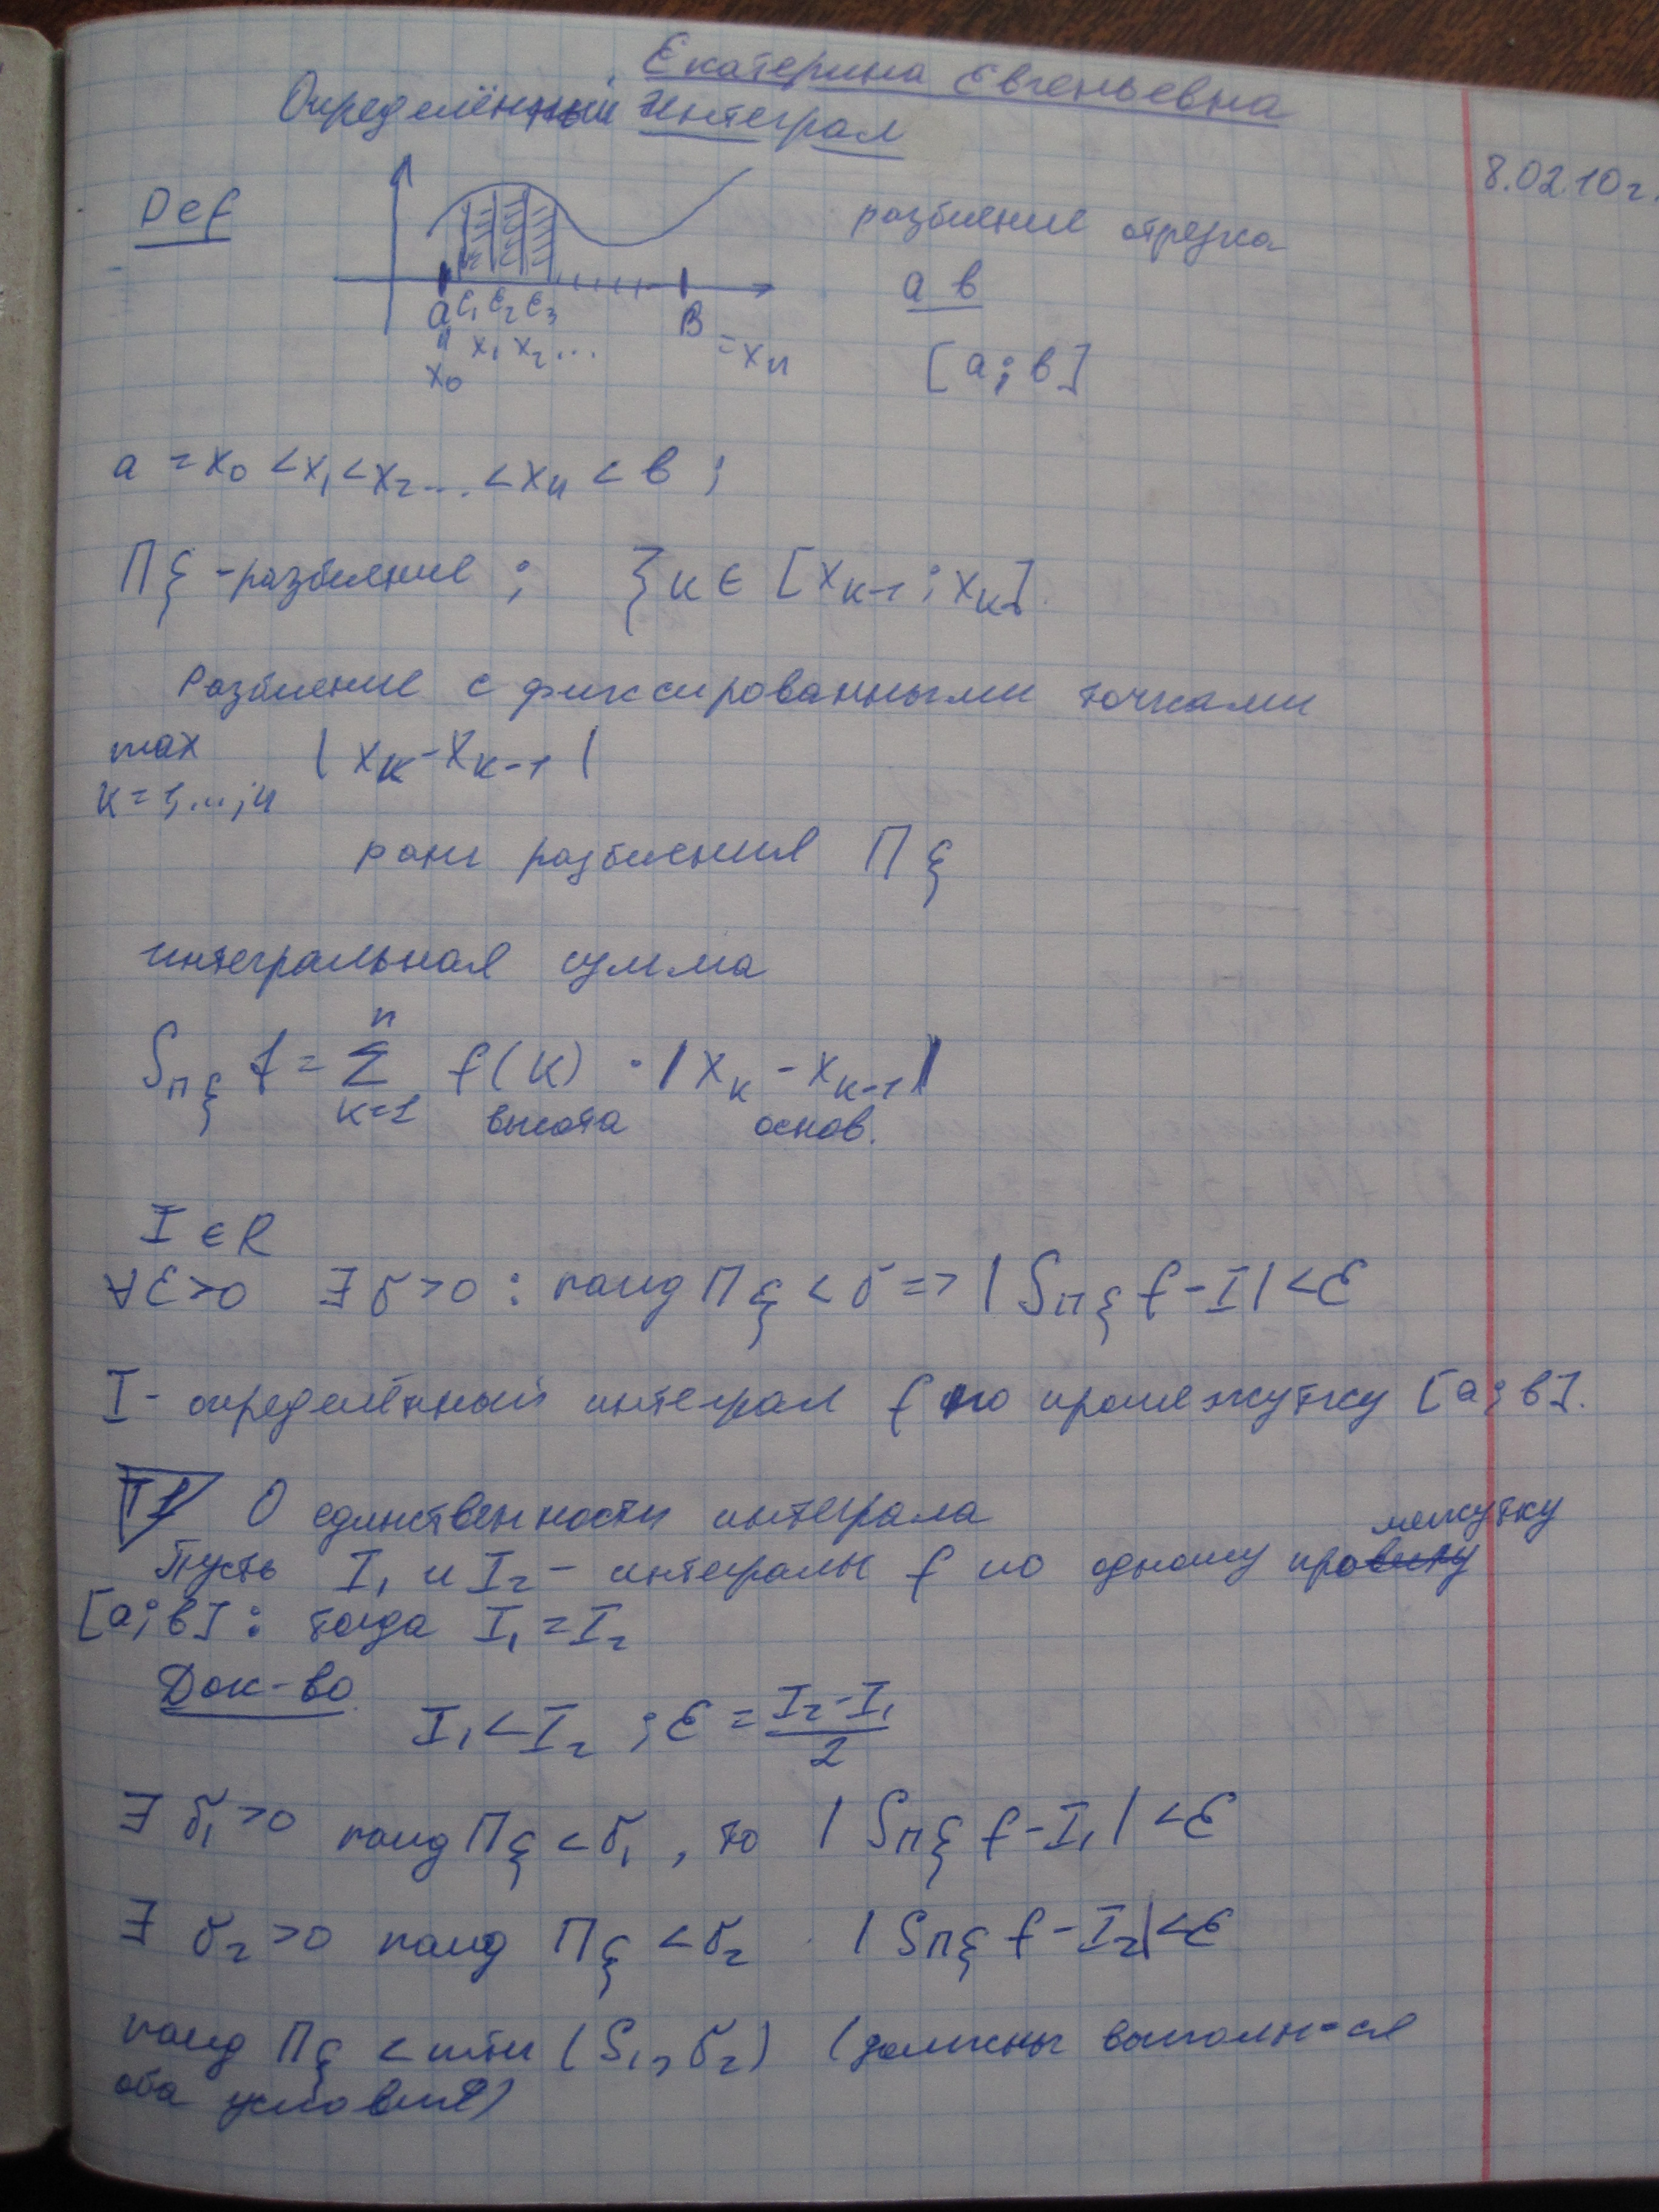 Екатерина Евгеньевна
Определённый интеграл
8.02.10г.
Def
разбиение отрезка
a в
[a; в]
a c₁ c₂ c₃ B = xₙ
x₀ x₁ x₂ ...
a = x₀ < x₁ < x₂ ... < xₙ < в ;
Пξ - разбиение ; ξк ∈ [xк-1 ; xк]
Разбиение с фиксированными точками
max |xк - xк-1|
к = 1, ..., n
ранг разбиения Пξ
интегральная сумма
S_Пξ f = Σ f(к) · |xк - xк-1|
n
к=1 высота основ.
I ∈ R
∀ε>0 ∃δ>0 : Пξ < δ => |S_Пξ f - I| < ε
I - определённый интеграл f по промежутку [a; в].
T1 О единственности интеграла
Пусть I₁ и I₂ - интегралы f по одному промежутку
[a; в] : тогда I₁ = I₂
Док-во
I₁ < I₂ ; ε = (I₂ - I₁)/2
∃ δ₁ > 0 Пξ < δ₁ , то |S_Пξ f - I₁| < ε
∃ δ₂ > 0 Пξ < δ₂ |S_Пξ f - I₂| < ε
Пξ < min (S₁, δ₂) (должны выполн-ся
оба условия)